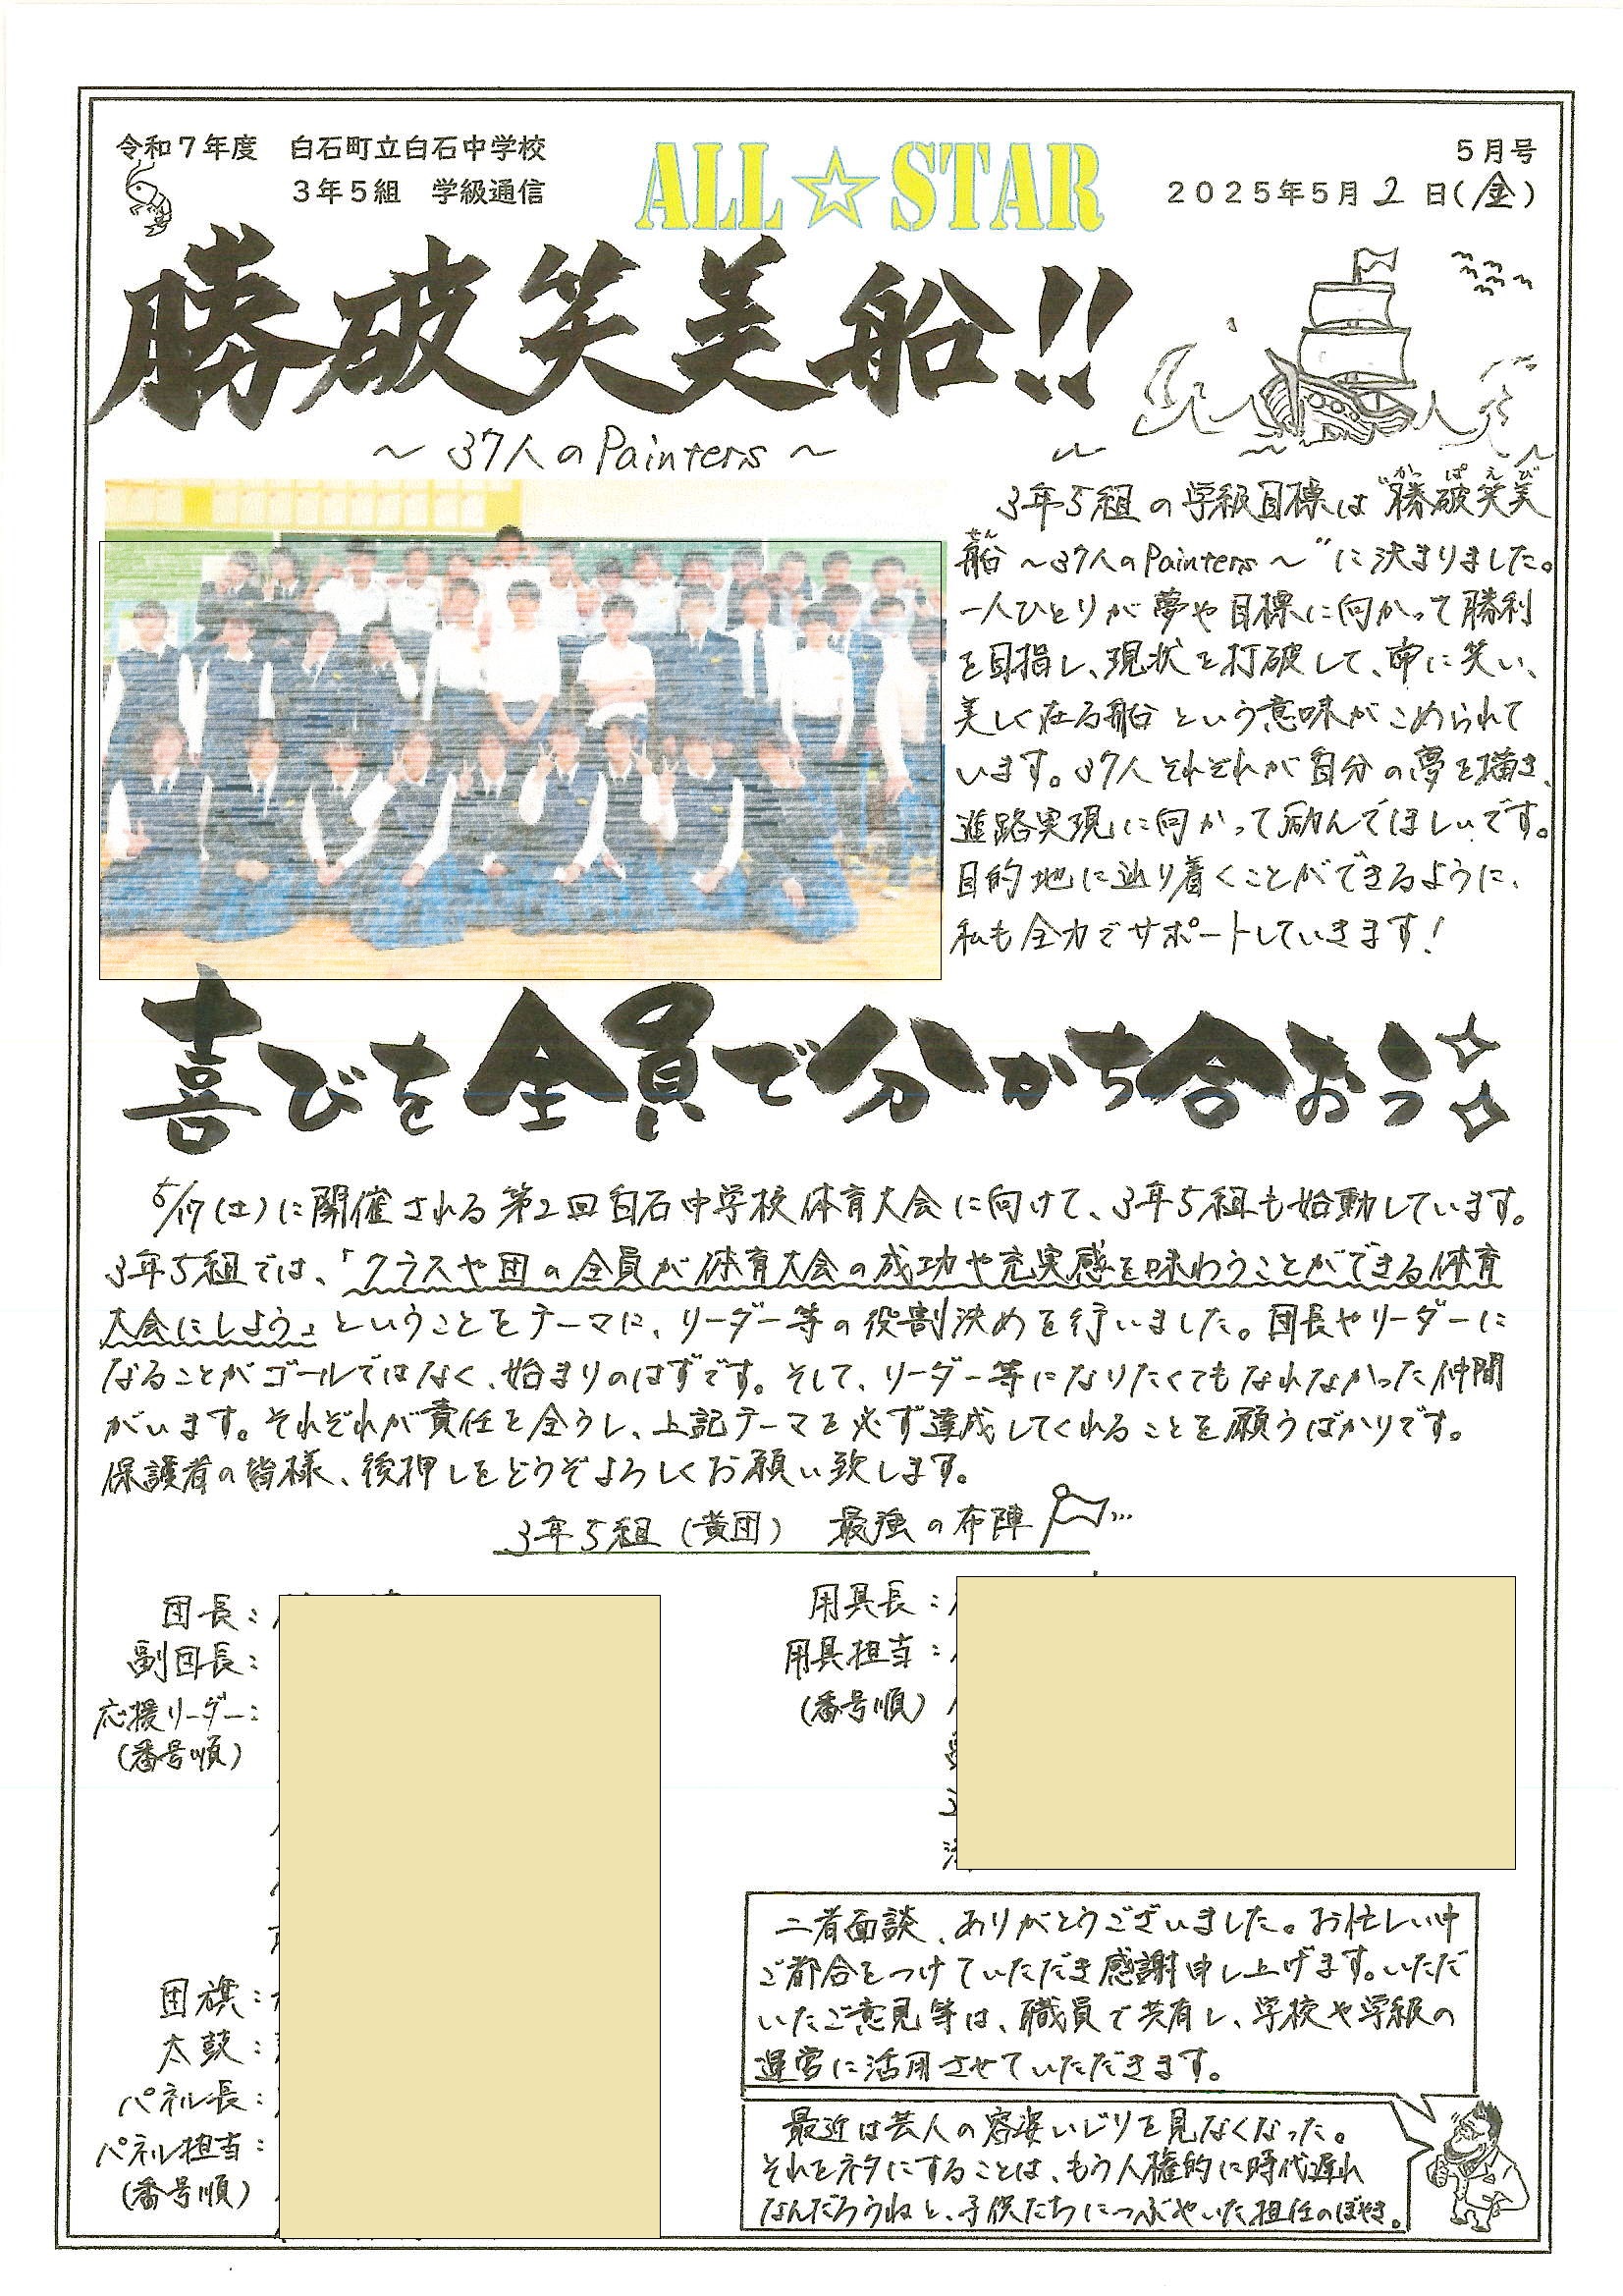 令和７年度　白石町立白石中学校
３年５組　学級通信
ALL☆STAR
５月号
２０２５年５月2日(金)
勝破笑美船!!
～37人のPainters～
3年5組の学級目標は“勝破笑美
かっぱえび
船～37人のPainters～”に決まりました。
せん
一人ひとりが夢や目標に向かって勝利
を目指し、現状を打破して、常に笑い、
美しく在る船という意味がこめられて
います。37人それぞれが自分の夢を描き、
進路実現に向かって励んでほしいです。
目的地に辿り着くことができるように、
私も全力でサポートしていきます！
喜びを全員で分かち合おう
5/17(土)に開催される第2回白石中学校体育大会に向けて、3年5組も始動しています。
3年5組では、「クラスや団の全員が体育大会の成功や充実感を味わうことができる体育
大会にしよう」ということをテーマに、リーダー等の役割決めを行いました。団長やリーダーに
なることがゴールではなく、始まりのはずです。そして、リーダー等になりたくてもなれなかった仲間
がいます。それぞれが責任を全うし、上記テーマを必ず達成してくれることを願うばかりです。
保護者の皆様、後押しをどうぞよろしくお願い致します。
3年5組(黄団)　最強の布陣
団長：
副団長：
応援リーダー：
(番号順)
団旗：
太鼓：
パネル長：
パネル担当：
(番号順)
用具長：
用具担当：
(番号順)
二者面談、ありがとうございました。お忙しい中
ご都合をつけていただき感謝申し上げます。いただ
いたご意見等は、職員で共有し、学校や学級の
運営に活用させていただきます。
最近は芸人の容姿いじりを見なくなった。
それをネタにすることは、もう人権的に時代遅れ
なんだろうねと、子供たちにつぶやいた担任のぼやき。